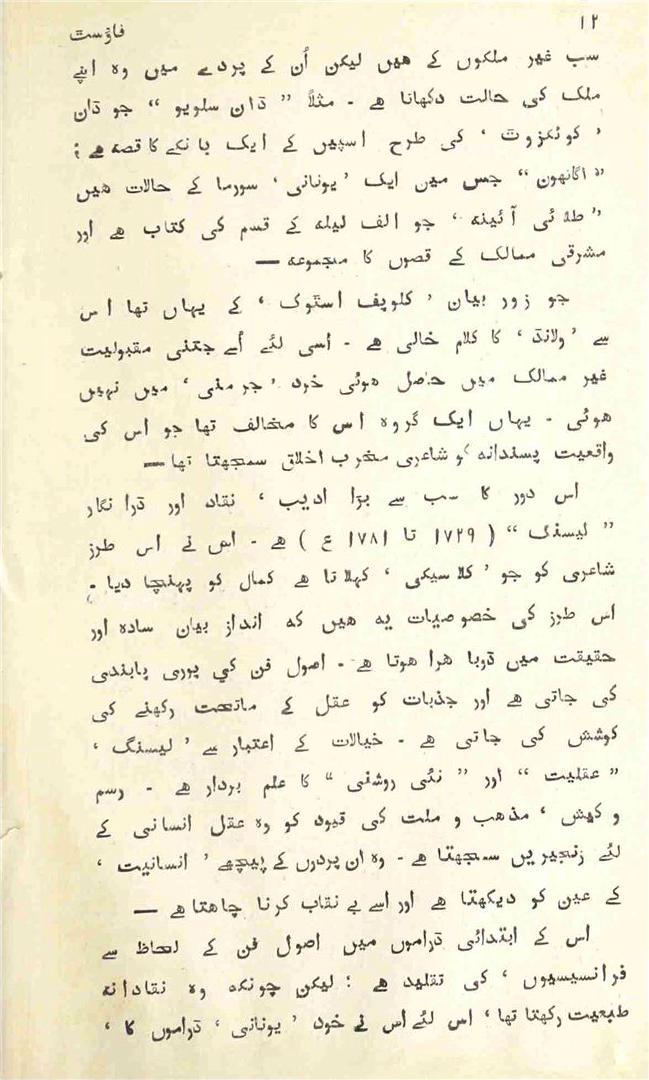 ۱۲
فاؤسٹ
سب غیر ملکوں کے هیں لیکن اُن کے پردے میں وہ اپنے
ملک کی حالت دکھاتا هے - مثلاً ” ڈان سلویو “ جو ڈان
’ کوئکزوٹ ‘ کی طرح اسپین کے ایک بانکے کا قصہ هے ؛
” اگاتھون “ جس میں ایک ’ یونانی ‘ سورما کے حالات هیں
” طلائی آئینہ ‘ جو الف لیلہ کے قسم کی کتاب هے اور
مشرقی ممالک کے قصوں کا مجموعہ —
جو زور بیان ’ کلوپف اسٹوک ‘ کے یہاں تھا اس
سے ’ ولانڈ ‘ کا کلام خالی هے - اُسی لئے اُسے جتنی مقبولیت
غیر ممالک میں حاصل هوئی خود ’ جرمنی ‘ میں نہیں
هوئی - یہاں ایک گروہ اس کا مخالف تھا جو اس کی
واقعیت پسندانہ کو شاعری مخرب اخلاق سمجھتا تھا —
اس دور کا سب سے بڑا ادیب ‘ نقاد اور ڈرا نگار
” لیسنگ “ ( ۱۷۲۹ تا ۱۷۸۱ ع ) هے - اس نے اس طرز
شاعری کو جو ’ کلاسیکی ‘ کہلاتا هے کمال کو پہنچا دیا -
اس طرز کی خصوصیات یہ هیں کہ انداز بیان سادہ اور
حقیقت میں ڈوبا هوا هوتا هے - اصول فن کی پوری پابندی
کی جاتی هے اور جذبات کو عقل کے ماتحت رکھنے کی
کوشش کی جاتی هے - خیالات کے اعتبار سے ’ لیسنگ ‘
” عقلیت “ اور ” نئی روشنی “ کا علم بردار هے - رسم
و کیش ‘ مذهب و ملت کی قیود کو وہ عقل انسانی کے
لئے زنجیریں سمجھتا هے - وہ ان پردوں کے پیچھے ’ انسانیت ‘
کے عین کو دیکھتا هے اور اسے بے نقاب کرنا چاهتا هے —
اس کے ابتدائی ڈراموں میں اصول فن کے لحاظ سے
فرانسیسیوں ‘ کی تقلید هے ؛ لیکن چونکہ وہ نقادانہ
طبیعت رکھتا تھا ‘ اس لئے اس نے خود ’ یونانی ‘ ڈراموں کا ‘